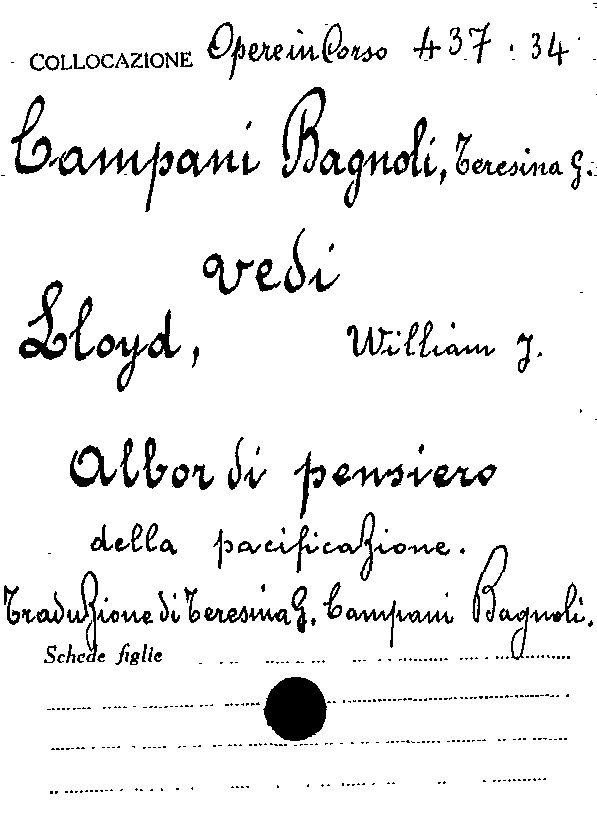 COLLOCAZIONE Opere in Corso 437.34
Campani Bagnoli, Teresina G.
vedi
Lloyd, William J.
Albor di pensiero
della pacificazione.
Traduzione di Teresina G. Campani Bagnoli.
Schede figlie